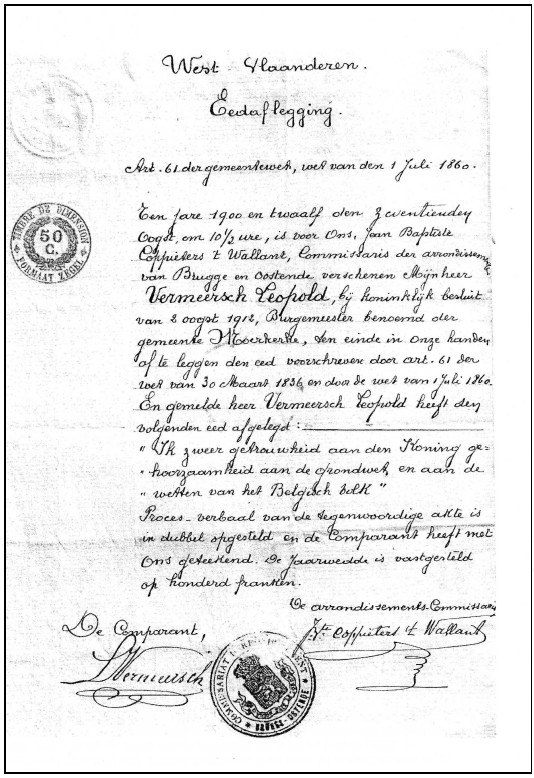 West-Vlaanderen.
Eedaflegging.
Art. 61 der gemeentewet, wet van den 1 Juli 1860.
TIMBRE DE DIMENSION
50
C.
FORMAAT ZEGEL
Ten jare 1900 en twaalf den zeventienden
Oogst, om 10 1/2 ure, is voor Ons, Jean Baptiste
Coppieters 't Wallant, Commissaris der arrondissementen
van Brugge en Oostende verschenen Mijnheer
Vermeersch Leopold, bij koninklijk besluit
van 2 oogst 1912, Burgemeester benoemd der
gemeente Moerkerke, ten einde in onze handen
af te leggen den eed voorschreven door art. 61 der
wet van 30 Maart 1836, en door de wet van 1 Juli 1860.
En gemelde heer Vermeersch Leopold heeft den
volgenden eed afgelegd:
" Ik zweer getrouwheid aan den Koning ge=
" hoorzaamheid aan de grondwet, en aan de
" wetten van het Belgisch volk "
Proces-verbaal van de tegenwoordige akte is
in dubbel opgesteld en de Comparant heeft met
Ons geteekend. De Jaarwedde is vastgesteld
op honderd franken.
De arrondissements-Commissaris
De Comparant,
Jn Coppieters 't Wallant
LVermeersch
COMMISSARIAT D'ARRONDISSEMENT
BRUGES-OSTENDE